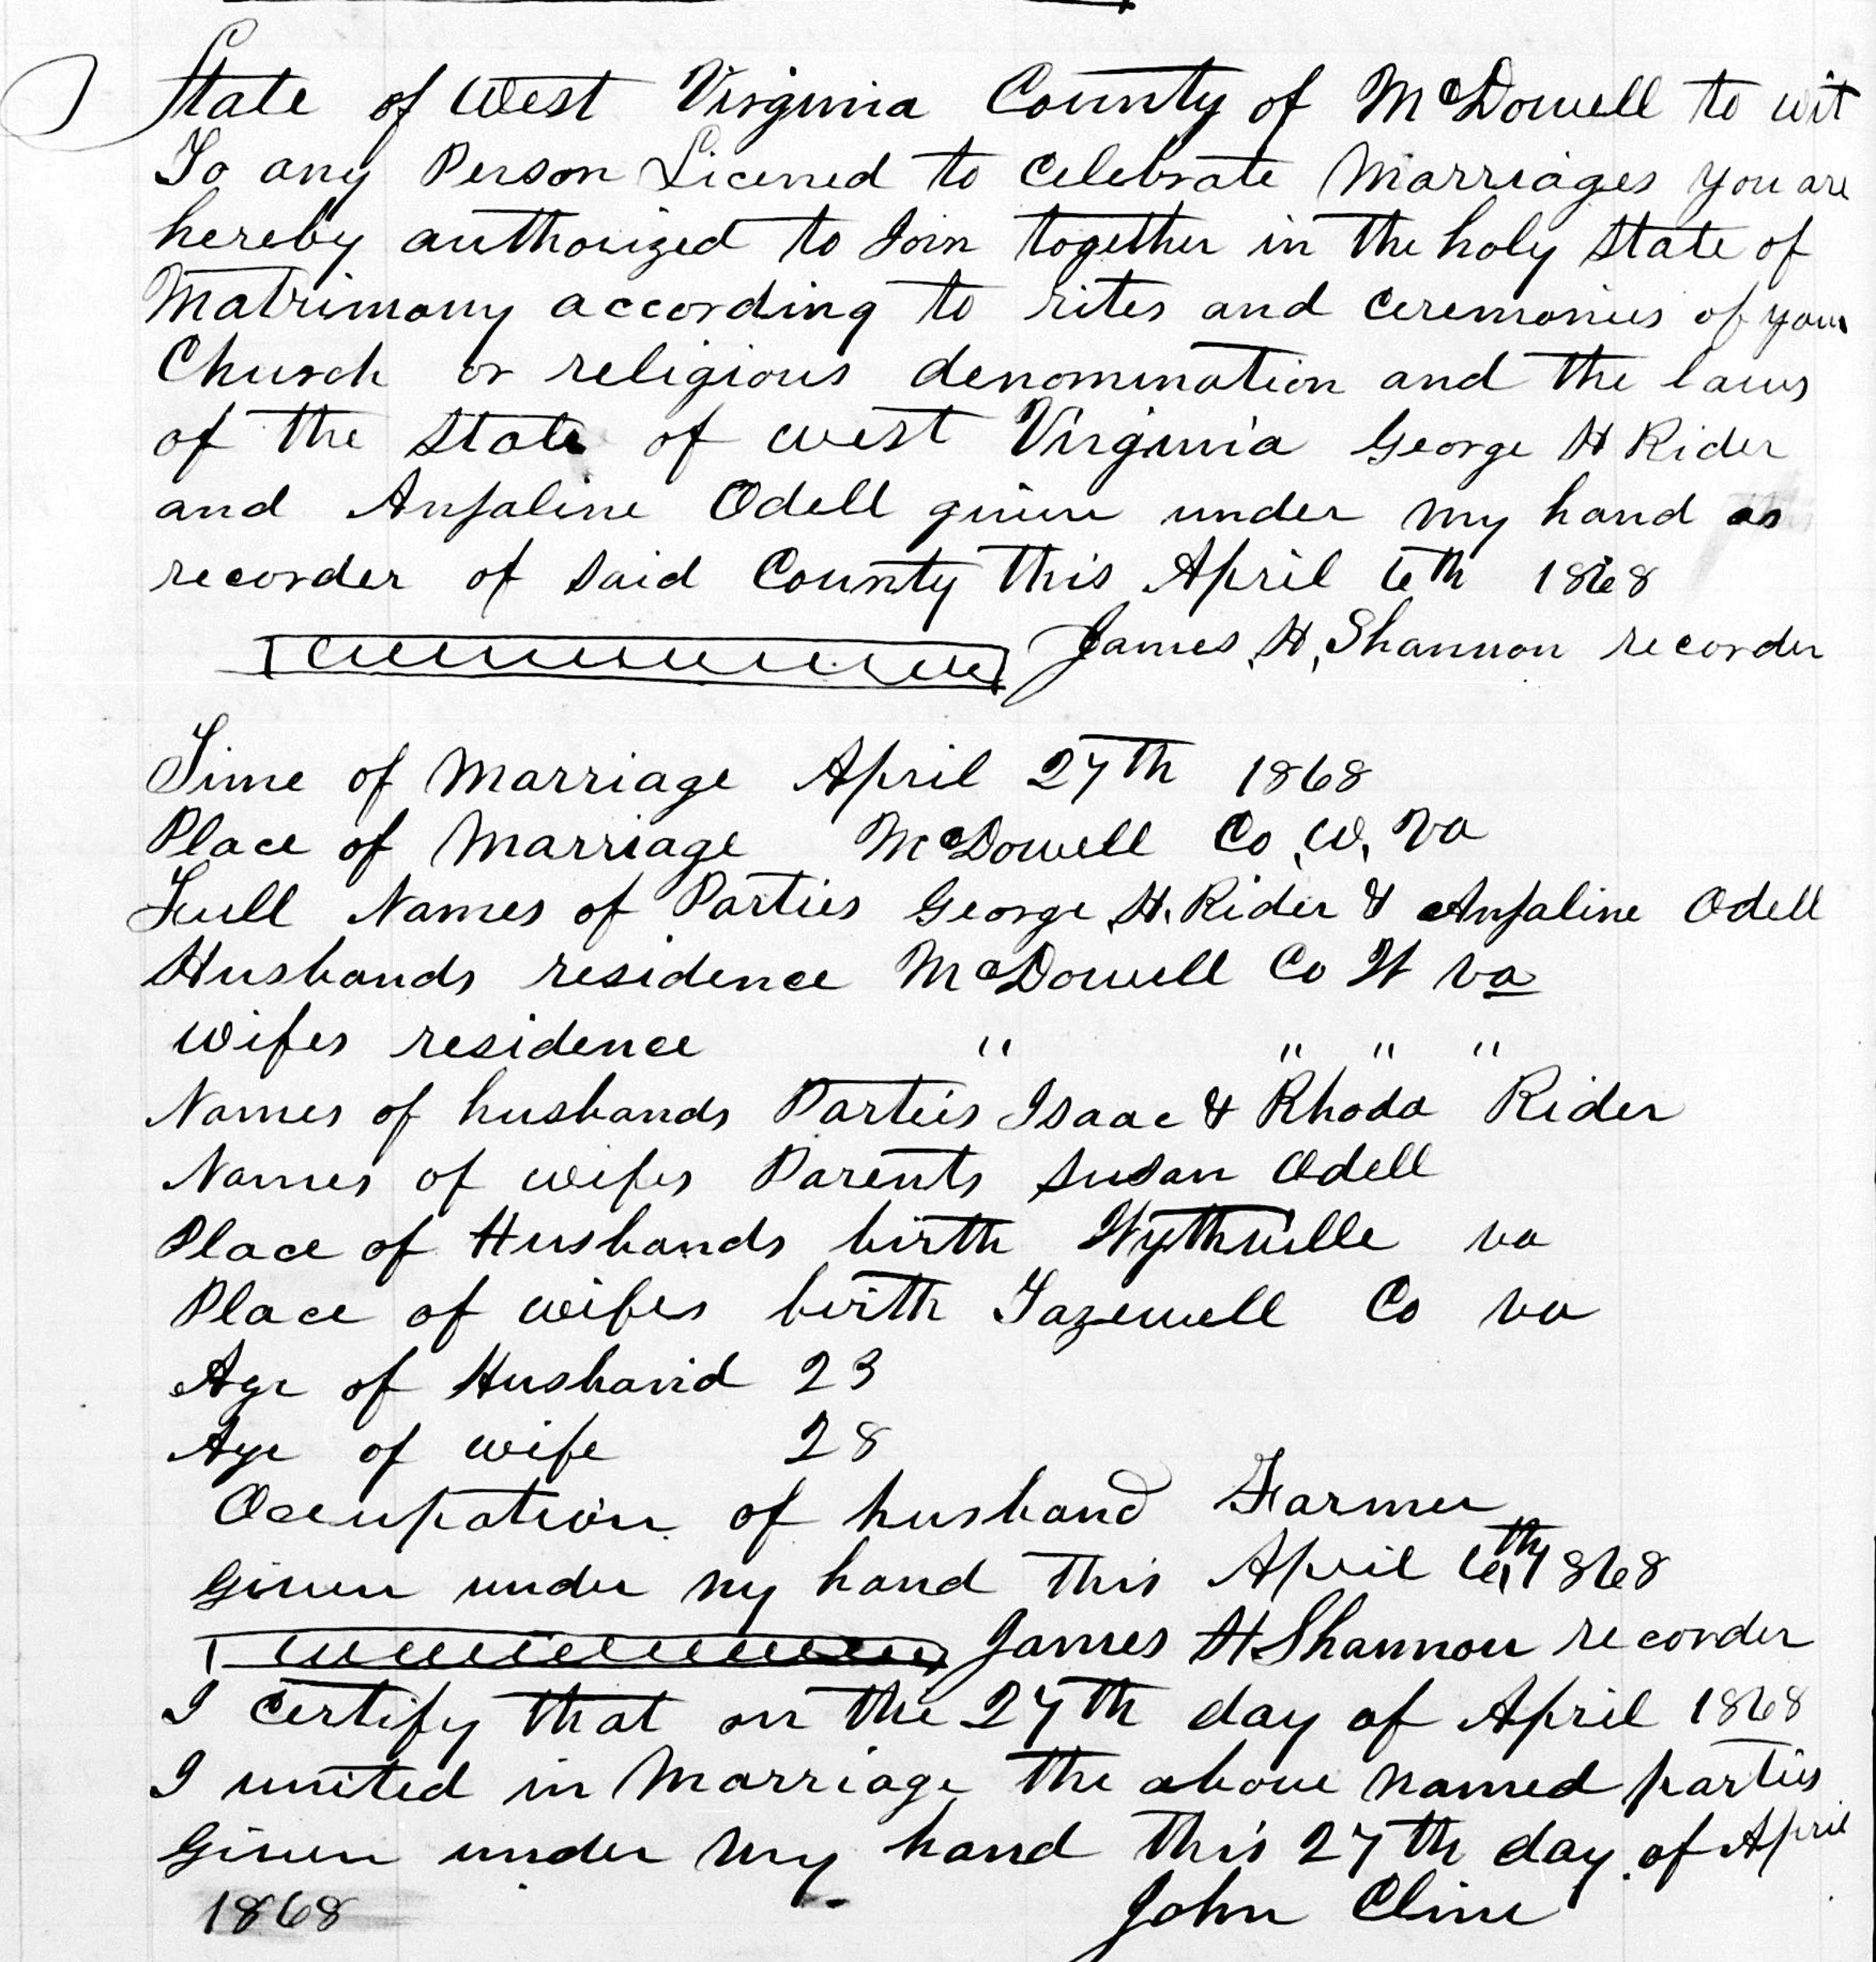 State of West Virginia County of McDowell to wit
To any Person Licened to Celebrate Marriages you are
hereby authorized to Join together in the holy State of
Matrimony according to rites and ceremonies of your
Church or religious denomination and the laws
of the State of west Virginia George H Rider
and Anjaline Odell given under my hand as
recorder of said County this April 6th 1868
James, H, Shannon recorder
Time of Marriage April 27th 1868
Place of Marriage McDowell Co, W, Va
Full Names of Parties George, H. Rider & Anjaline Odell
Husbands residence McDowell Co W Va
Wifes residence " " " "
Names of husbands Parties Isaac & Rhoda Rider
Names of wifes Parents Susan Odell
Place of Husbands birth Wythville va
Place of wifes birth Tazewell Co va
Age of Husband 23
Age of wife 28
Occupation of husband Farmer
Given under my hand this April 6th, 1868
James H Shannon recorder
I certify that on the 27th day of April 1868
I united in Marriage the above named parties
Given under my hand this 27th day of April
1868 John Cline